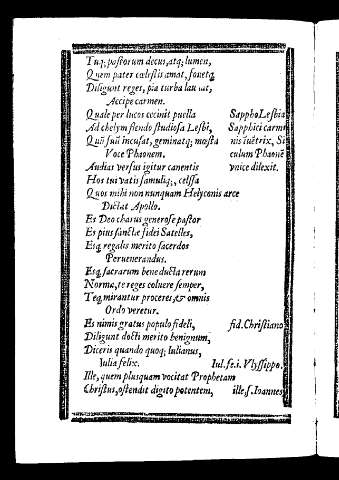 Tuq; pastorum decus, atq; lumen,
Quem pater cœlestis amat, fouetq
Diligunt reges, pia turba laudat,
Accipe carmen.
Quale per lucos cecinit puella Sappho Lesbia
Ad chelym flendo studiosa Lesbi, Sapphici carmi
Quū suū incusat, geminatq; mœsta nis iuētrix, Si
Voce Phaonem. culum Phaonē
Audias versus igitur canentis vnice dilexit.
Hos tui vatis famuliq;, celsa
Quos mihi non nunquam Helyconis arce
Dictat Apollo.
Es Deo charus generose pastor
Es pius sanctæ fidei Satelles,
Esq regalis merito sacerdos
Peruenerandus.
Esq sacrarum bene ducta rerum
Norma, te reges coluere semper,
Teq mirantur proceres, & omnis
Ordo veretur.
Es nimis gratus populo fideli, fid. Christiano
Diligunt docti merito benignum,
Diceris quando quoq; Iulianus,
Iulia felix. Iul. fe. i. Vlyssippo.
Ille, quem plusquam vocitat Prophetam
Christus, ostendit digito potentem, ille, s. Ioannes